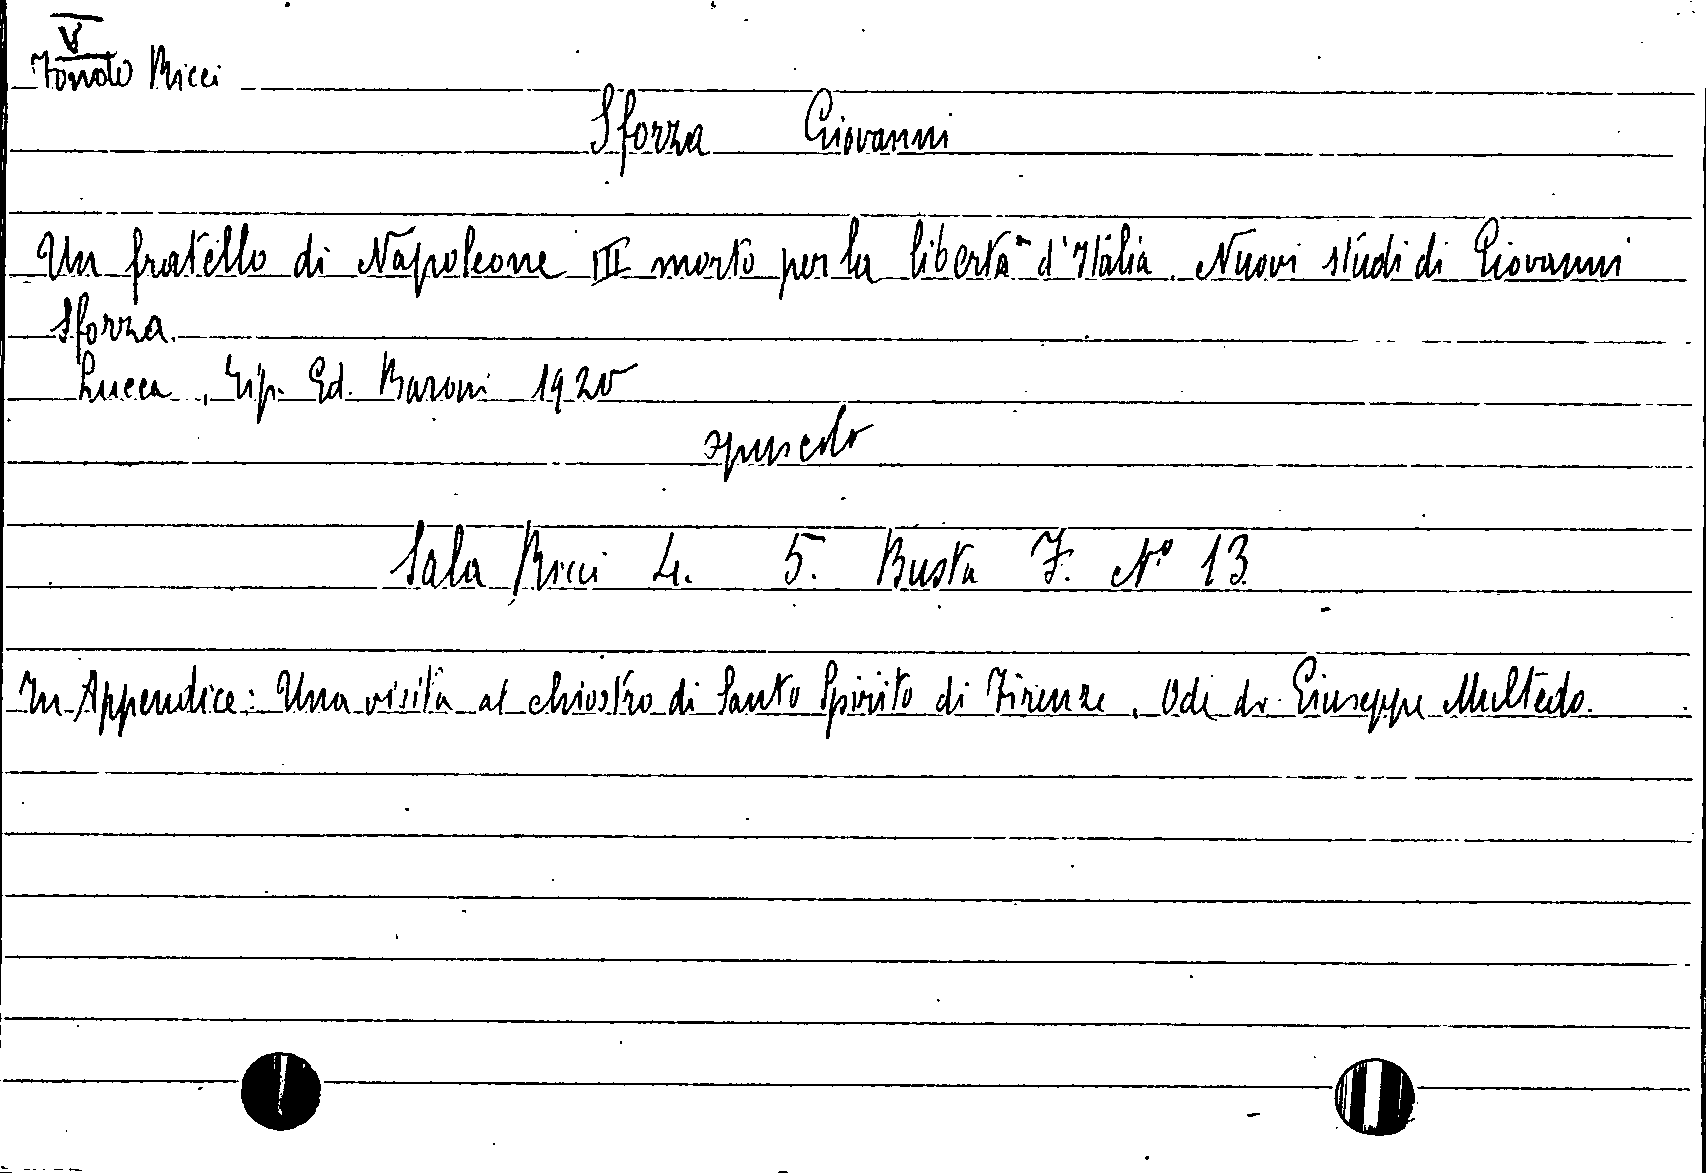 V
Fondo Ricci
Sforza Giovanni
Un fratello di Napoleone III morto per la libertà d'Italia. Nuovi studi di Giovanni
Sforza.
Lucca, Tip. Ed. Baroni 1920
opuscolo
Sala Ricci 4. 5. Busta F. N° 13
In Appendice: Una visita al chiostro di Santo Spirito di Firenze. Ode di Giuseppe Multedo.